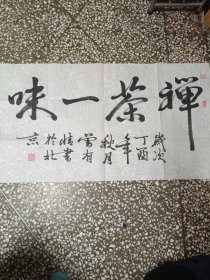 禪茶一味
歲次
丁酉
年
秋月
曾有
情書
於北
京